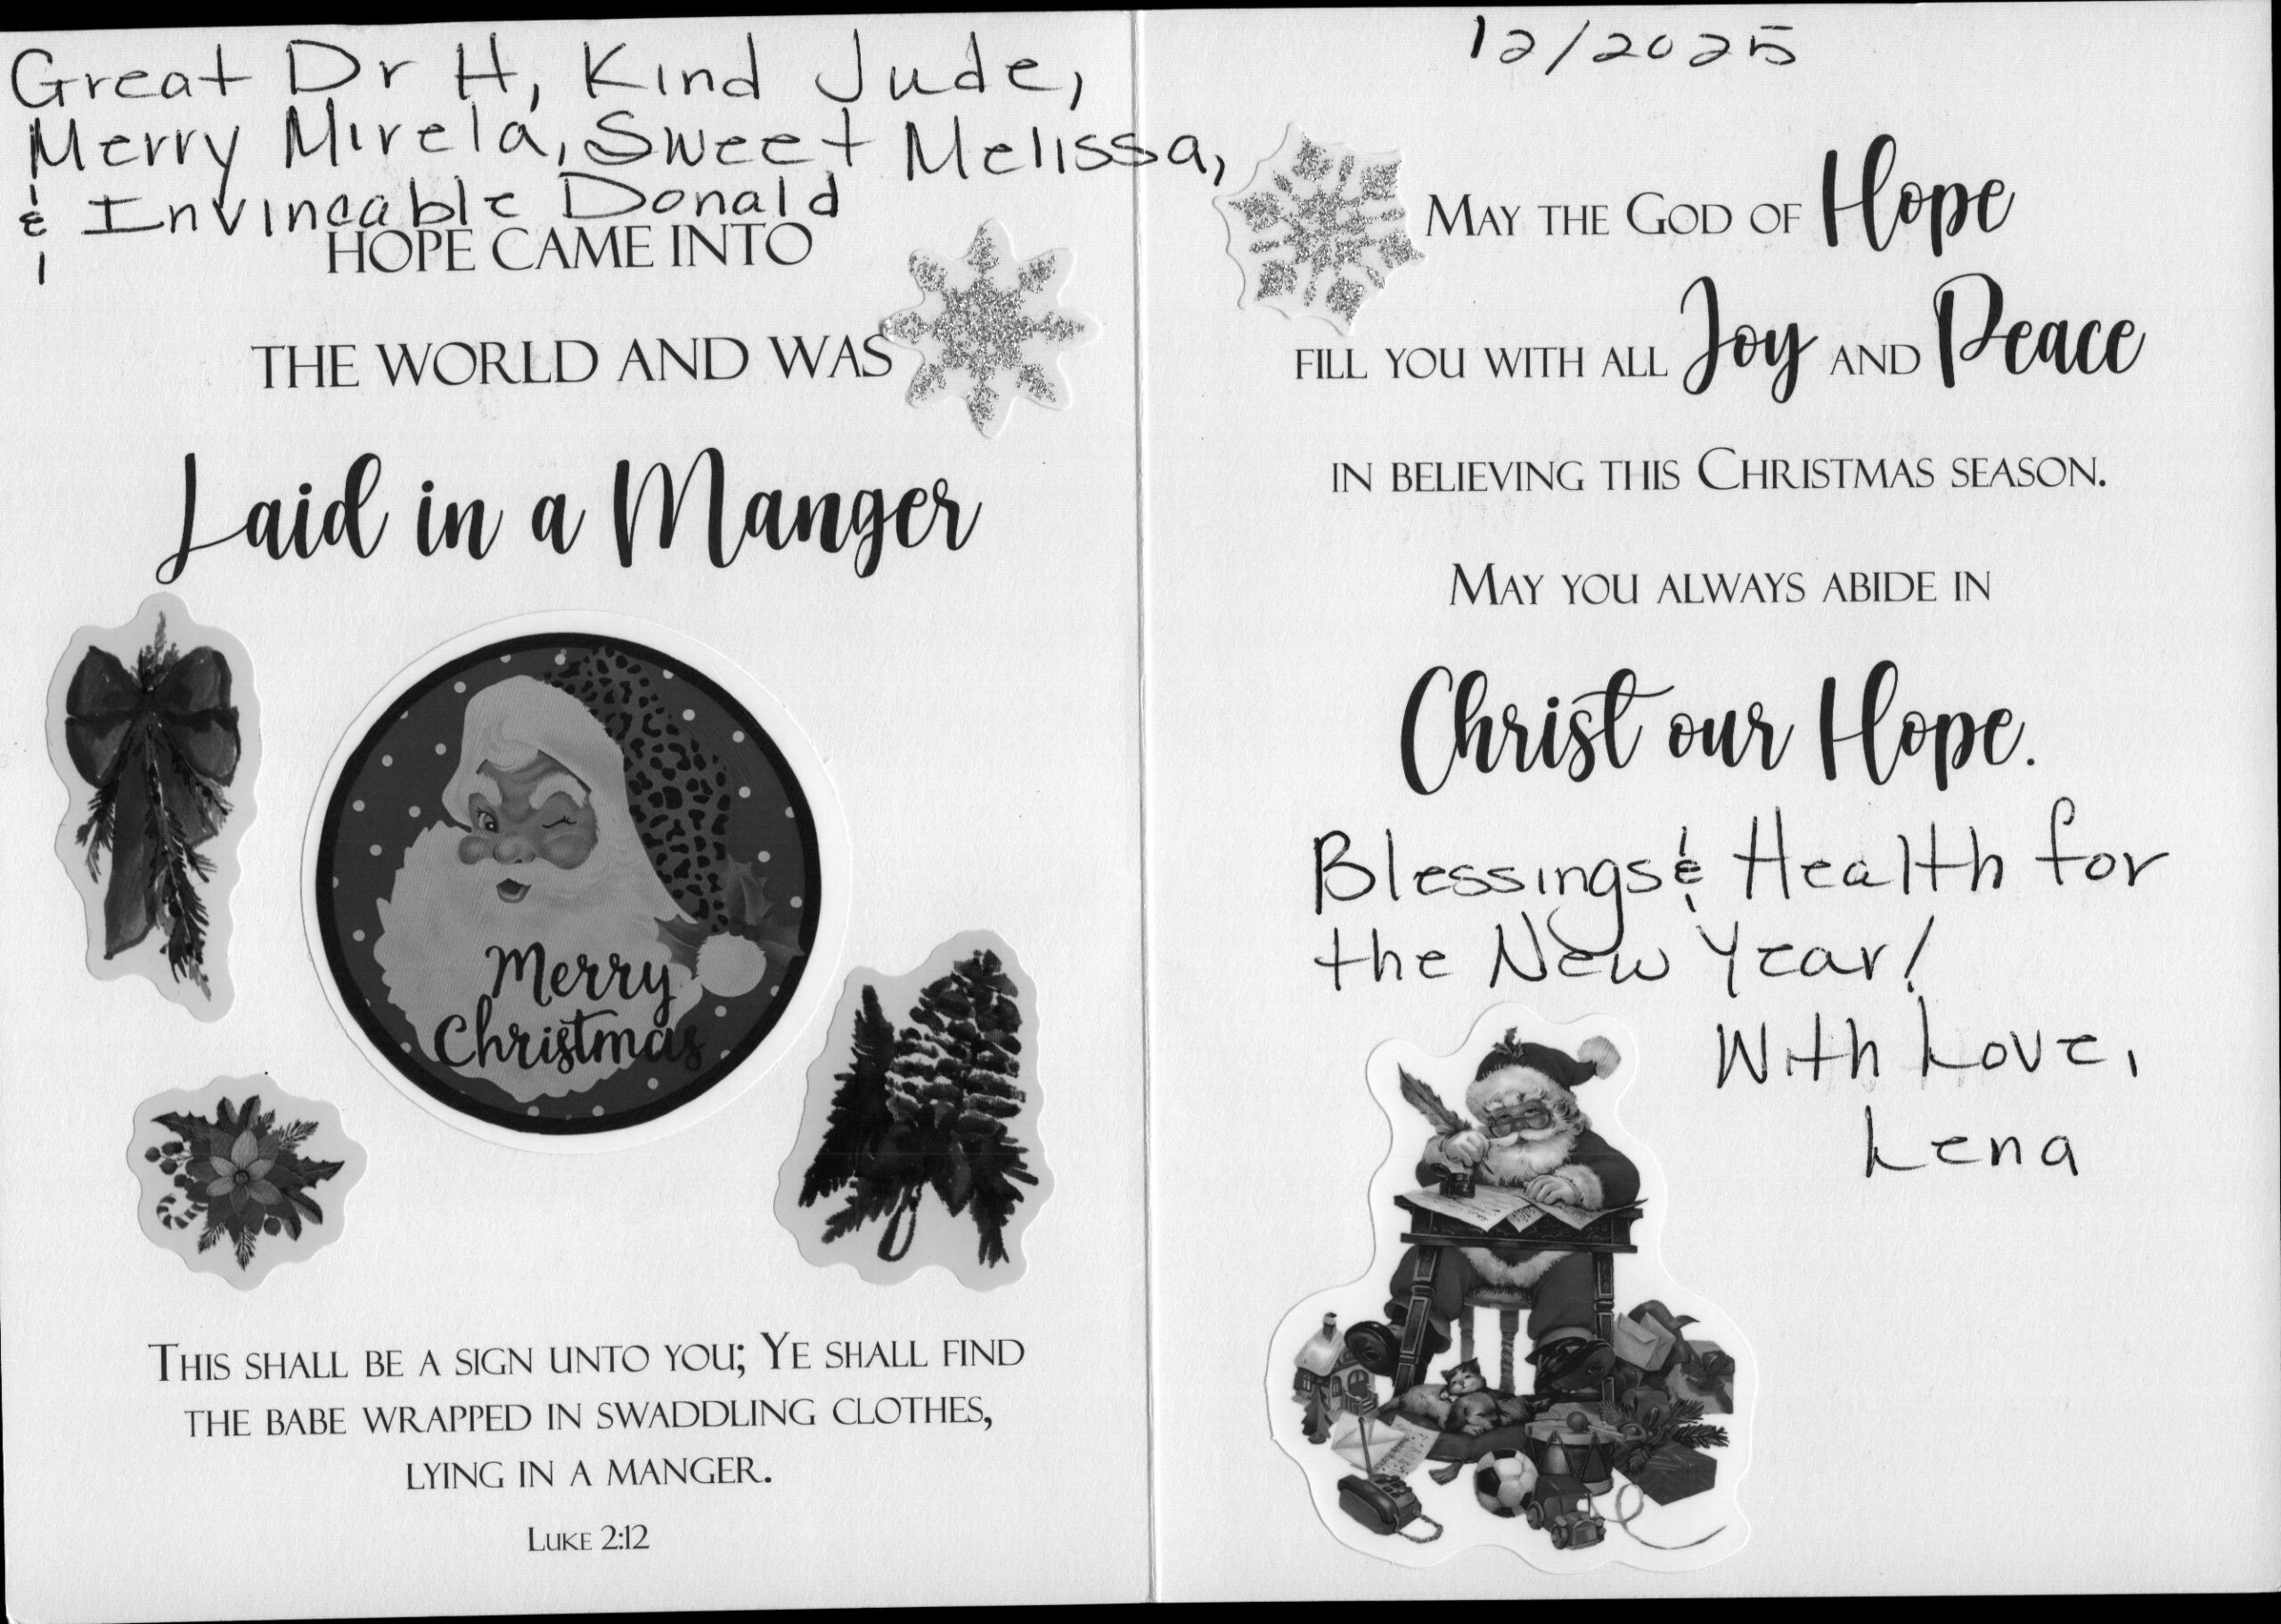 Great Dr H, Kind Jude,
Merry Mirela, Sweet Melissa,
& Invincable Donald
HOPE CAME INTO
THE WORLD AND WAS
Laid in a Manger
Merry
Christmas
THIS SHALL BE A SIGN UNTO YOU; YE SHALL FIND
THE BABE WRAPPED IN SWADDLING CLOTHES,
LYING IN A MANGER.
LUKE 2:12
12/2025
MAY THE GOD OF Hope
FILL YOU WITH ALL Joy AND Peace
IN BELIEVING THIS CHRISTMAS SEASON.
MAY YOU ALWAYS ABIDE IN
Christ our Hope.
Blessings & Health for
the New Year!
With Love,
Lena